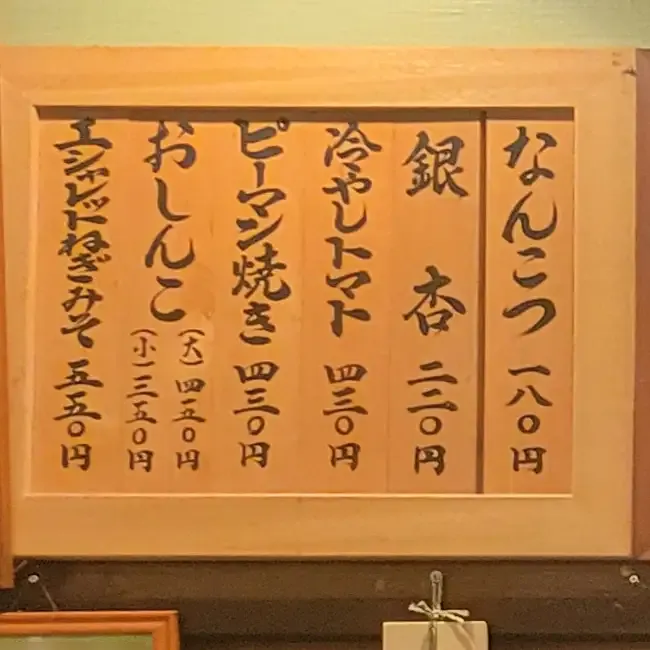 なんこつ 一八〇円
銀杏 二二〇円
冷やしトマト 四三〇円
ピーマン焼き 四三〇円
おしんこ (大)四五〇円
(小)三五〇円
エシャレットねぎみそ 五五〇円